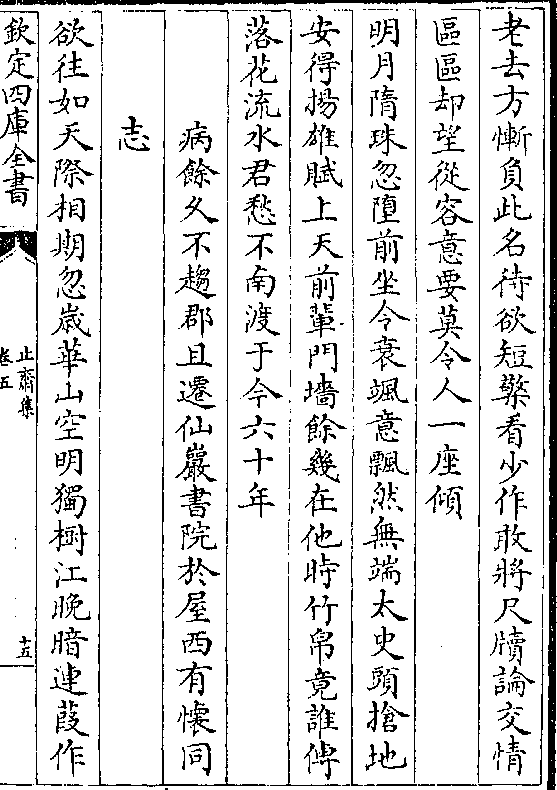 老去方慚負此名待欲短檠看少作敢將尺牘論交情
區區却望從容意要莫令人一座傾
明月隋珠忽墮前坐令衰颯意飄然無端太史頭搶地
安得揚雄賦上天前輩門墻餘幾在他時竹帛竟誰傳
落花流水君愁不南渡于今六十年
病餘久不趨郡且遷仙巖書院於屋西有懷同
志
欲往如天際相期忽歲華山空明獨樹江晚暗連葭作
欽定四庫全書
止齋集
卷五
十五